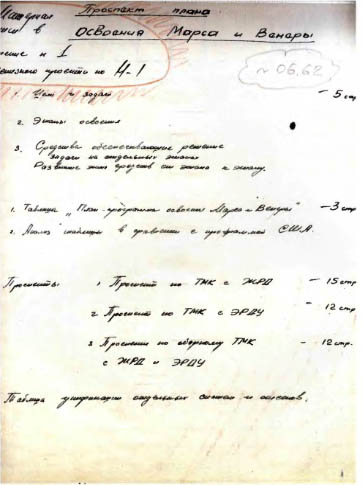 Проспект плана
Материал
Освоения Марса и Венеры
№1
проекта по Н-1
~ 06.62
1. Цели и задачи - 5 стр
2. Этапы освоения
3. Средства обеспечивающие решение
задач на отдельных этапах
Развитие этих средств от этапа к этапу.
1. Таблица „План-программа освоения Марса и Венеры" - 3 стр
2. Анализ таблицы в сравнении с программой США.
Проспекты: 1 Проспект по ТМК с ЖРД - 15 стр
2 Проспект по ТМК с ЭРДУ - 12 стр
3 Проспект по сборному ТМК - 12 стр.
с ЖРД и ЭРДУ
Таблица унификации отдельных систем и